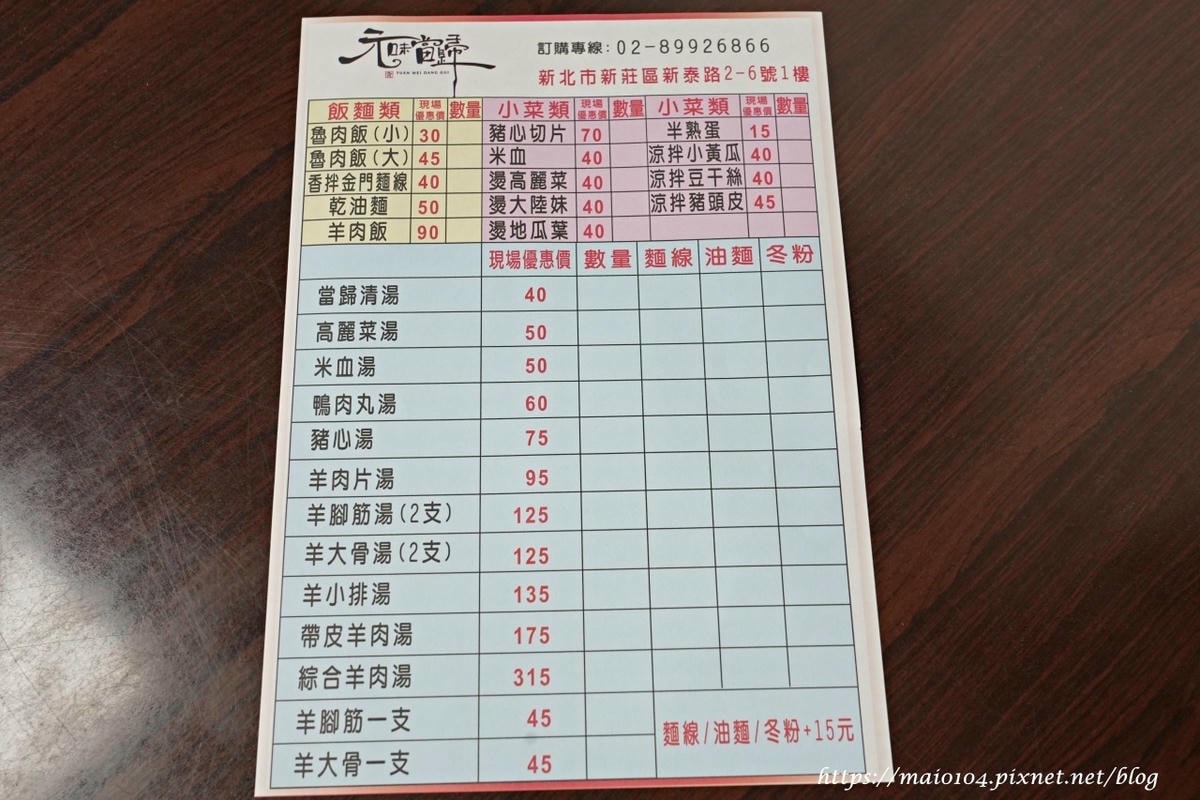 元味當歸
YUAN WEI DANG GUI
訂購專線:02-89926866
新北市新莊區新泰路2-6號1樓
飯麵類 現場優惠價 數量 小菜類 現場優惠價 數量 小菜類 現場優惠價 數量
魯肉飯(小) 30 豬心切片 70 半熟蛋 15
魯肉飯(大) 45 米血 40 涼拌小黃瓜 40
香拌金門麵線 40 燙高麗菜 40 涼拌豆干絲 40
乾油麵 50 燙大陸妹 40 涼拌豬頭皮 45
羊肉飯 90 燙地瓜葉 40
現場優惠價 數量 麵線 油麵 冬粉
當歸清湯 40
高麗菜湯 50
米血湯 50
鴨肉丸湯 60
豬心湯 75
羊肉片湯 95
羊腳筋湯(2支) 125
羊大骨湯(2支) 125
羊小排湯 135
帶皮羊肉湯 175
綜合羊肉湯 315
羊腳筋一支 45
麵線/油麵/冬粉+15元
羊大骨一支 45
https://maio104.pixnet.net/blog